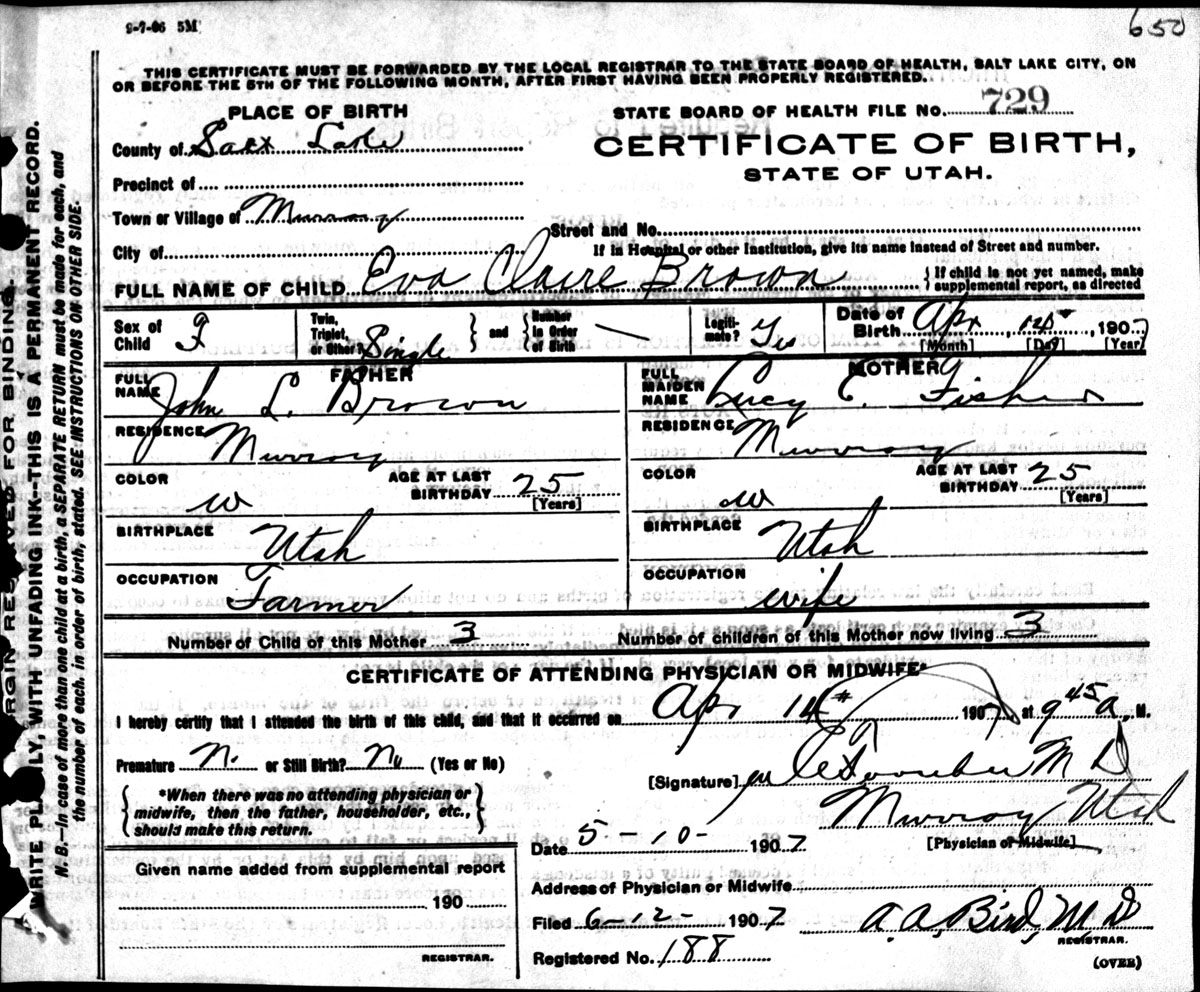 650
9-7-06 5M
THIS CERTIFICATE MUST BE FORWARDED BY THE LOCAL REGISTRAR TO THE STATE BOARD OF HEALTH, SALT LAKE CITY, ON
OR BEFORE THE 5TH OF THE FOLLOWING MONTH, AFTER FIRST HAVING BEEN PROPERLY REGISTERED.
PLACE OF BIRTH
STATE BOARD OF HEALTH FILE No. 729
County of Salt Lake
CERTIFICATE OF BIRTH,
STATE OF UTAH.
Precinct of
Town or Village of Murray
Street and No.
City of
If in Hospital or other Institution, give its name instead of Street and number.
FULL NAME OF CHILD Eva Claire Brown
{ If child is not yet named, make
supplemental report, as directed
Sex of Child F
Twin, Triplet, or Other? Single } and { Number in Order of Birth —
Legitimate? Yes
Date of Birth Apr 14 1907
[Month] [Day] [Year]
FATHER
FULL NAME John L. Brown
RESIDENCE Murray
COLOR w
AGE AT LAST BIRTHDAY 25
[Years]
BIRTHPLACE Utah
OCCUPATION Farmer
MOTHER
FULL MAIDEN NAME Lucy E. Fisher
RESIDENCE Murray
COLOR w
AGE AT LAST BIRTHDAY 25
[Years]
BIRTHPLACE Utah
OCCUPATION wife
Number of Child of this Mother 3
Number of children of this Mother now living 3
CERTIFICATE OF ATTENDING PHYSICIAN OR MIDWIFE*
I hereby certify that I attended the birth of this child, and that it occurred on Apr 14 1907, at 9 45 a. M.
Premature N. or Still Birth? No (Yes or No)
[Signature] M D
{ *When there was no attending physician or
midwife, then the father, householder, etc.,
should make this return. }
Murray Utah
[Physician or Midwife]
Date 5-10- 1907
Given name added from supplemental report
190
REGISTRAR.
Address of Physician or Midwife
Filed 6-12- 1907
A. A. Bird, M. D
REGISTRAR.
Registered No. 188
(OVER)
MARGIN RESERVED FOR BINDING.
WRITE PLAINLY, WITH UNFADING INK--THIS IS A PERMANENT RECORD.
N. B.—In case of more than one child at a birth, a SEPARATE RETURN must be made for each, and
the number of each, in order of birth, stated. SEE INSTRUCTIONS ON OTHER SIDE.